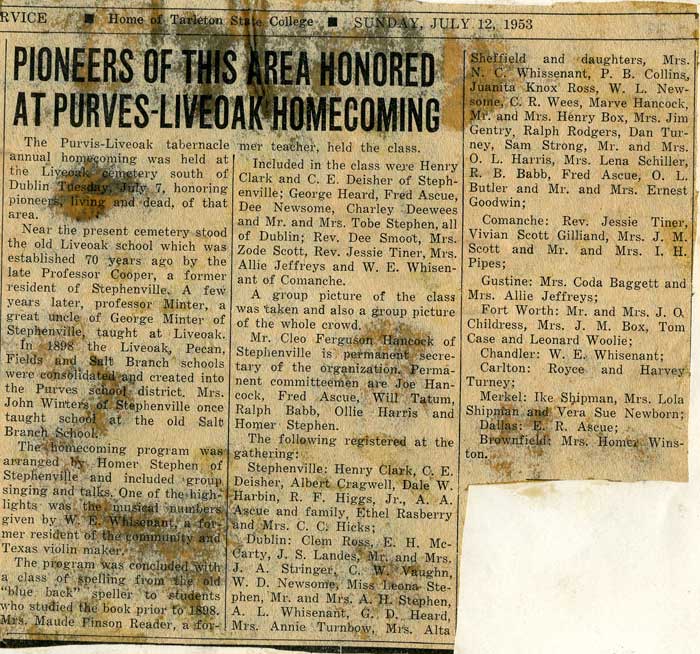 RVICE ■ Home of Tarleton State College ■ SUNDAY, JULY 12, 1953
PIONEERS OF THIS AREA HONORED
AT PURVES-LIVEOAK HOMECOMING
The Purvis-Liveoak tabernacle
annual homecoming was held at
the Liveoak cemetery south of
Dublin Tuesday, July 7, honoring
pioneers, living and dead, of that
area.
Near the present cemetery stood
the old Liveoak school which was
established 70 years ago by the
late Professor Cooper, a former
resident of Stephenville. A few
years later, professor Minter, a
great uncle of George Minter of
Stephenville, taught at Liveoak.
In 1898 the Liveoak, Pecan,
Fields and Salt Branch schools
were consolidated and created into
the Purves school district. Mrs.
John Winters of Stephenville once
taught school at the old Salt
Branch School.
The homecoming program was
arranged by Homer Stephen of
Stephenville and included group
singing and talks. One of the high-
lights was the musical numbers
given by W. E. Whisenant, a for-
mer resident of the community and
Texas violin maker.
The program was concluded with
a class of spelling from the old
"blue back" speller to students
who studied the book prior to 1898.
Mrs. Maude Finson Reader, a for-
mer teacher, held the class.
Included in the class were Henry
Clark and C. E. Deisher of Steph-
enville; George Heard, Fred Ascue,
Dee Newsome, Charley Deewees
and Mr. and Mrs. Tobe Stephen, all
of Dublin; Rev. Dee Smoot, Mrs.
Zode Scott, Rev. Jessie Tiner, Mrs.
Allie Jeffreys and W. E. Whisen-
ant of Comanche.
A group picture of the class
was taken and also a group picture
of the whole crowd.
Mr. Cleo Ferguson Hancock of
Stephenville is permanent secre-
tary of the organization. Perma-
nent committeemen are Joe Han-
cock, Fred Ascue, Will Tatum,
Ralph Babb, Ollie Harris and
Homer Stephen.
The following registered at the
gathering:
Stephenville: Henry Clark, C. E.
Deisher, Albert Cragwell, Dale W.
Harbin, R. F. Higgs, Jr., A. A.
Ascue and family, Ethel Rasberry
and Mrs. C. C. Hicks;
Dublin: Clem Ross, E. H. Mc-
Carty, J. S. Landes, Mr. and Mrs.
J. A. Stringer, C. W. Vaughn,
W. D. Newsome, Miss Leona Ste-
phen, Mr. and Mrs. A. H. Stephen,
A. L. Whisenant, G. D. Heard,
Mrs. Annie Turnbow, Mrs. Alta
Sheffield and daughters, Mrs.
N. C. Whissenant, P. B. Collins,
Juanita Knox Ross, W. L. New-
some, C. R. Wees, Marve Hancock,
Mr. and Mrs. Henry Box, Mrs. Jim
Gentry, Ralph Rodgers, Dan Tur-
ney, Sam Strong, Mr. and Mrs.
O. L. Harris, Mrs. Lena Schiller,
R. B. Babb, Fred Ascue, O. L.
Butler and Mr. and Mrs. Ernest
Goodwin;
Comanche: Rev. Jessie Tiner,
Vivian Scott Gilliand, Mrs. J. M.
Scott and Mr. and Mrs. I. H.
Pipes;
Gustine: Mrs. Coda Baggett and
Mrs. Allie Jeffreys;
Fort Worth: Mr. and Mrs. J. O.
Childress, Mrs. J. M. Box, Tom
Case and Leonard Woolie;
Chandler: W. E. Whisenant;
Carlton: Royce and Harvey
Turney;
Merkel: Ike Shipman, Mrs. Lola
Shipman and Vera Sue Newborn;
Dallas: E. R. Ascue;
Brownfield: Mrs. Homer Wins-
ton.